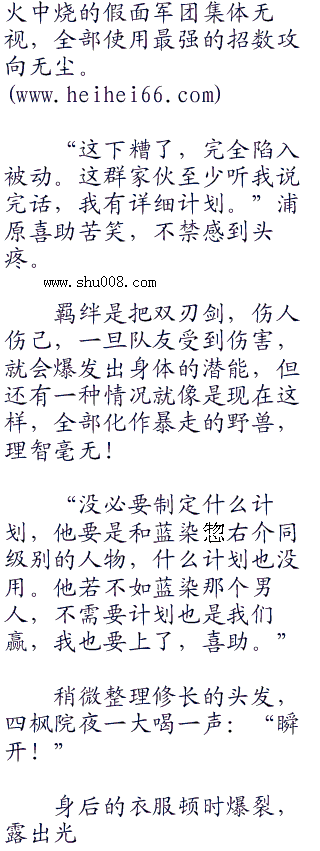 火中烧的假面军团集体无
视，全部使用最强的招数攻
向无尘。
(www.heihei66.com)
“这下糟了，完全陷入
被动。这群家伙至少听我说
完话，我有详细计划。”浦
原喜助苦笑，不禁感到头
疼。
www.shu008.com
羁绊是把双刃剑，伤人
伤己，一旦队友受到伤害，
就会爆发出身体的潜能，但
还有一种情况就像是现在这
样，全部化作暴走的野兽，
理智毫无！
“没必要制定什么计
划，他要是和蓝染惣右介同
级别的人物，什么计划也没
用。他若不如蓝染那个男
人，不需要计划也是我们
赢，我也要上了，喜助。”
稍微整理修长的头发，
四枫院夜一大喝一声：“瞬
开！”
身后的衣服顿时爆裂，
露出光